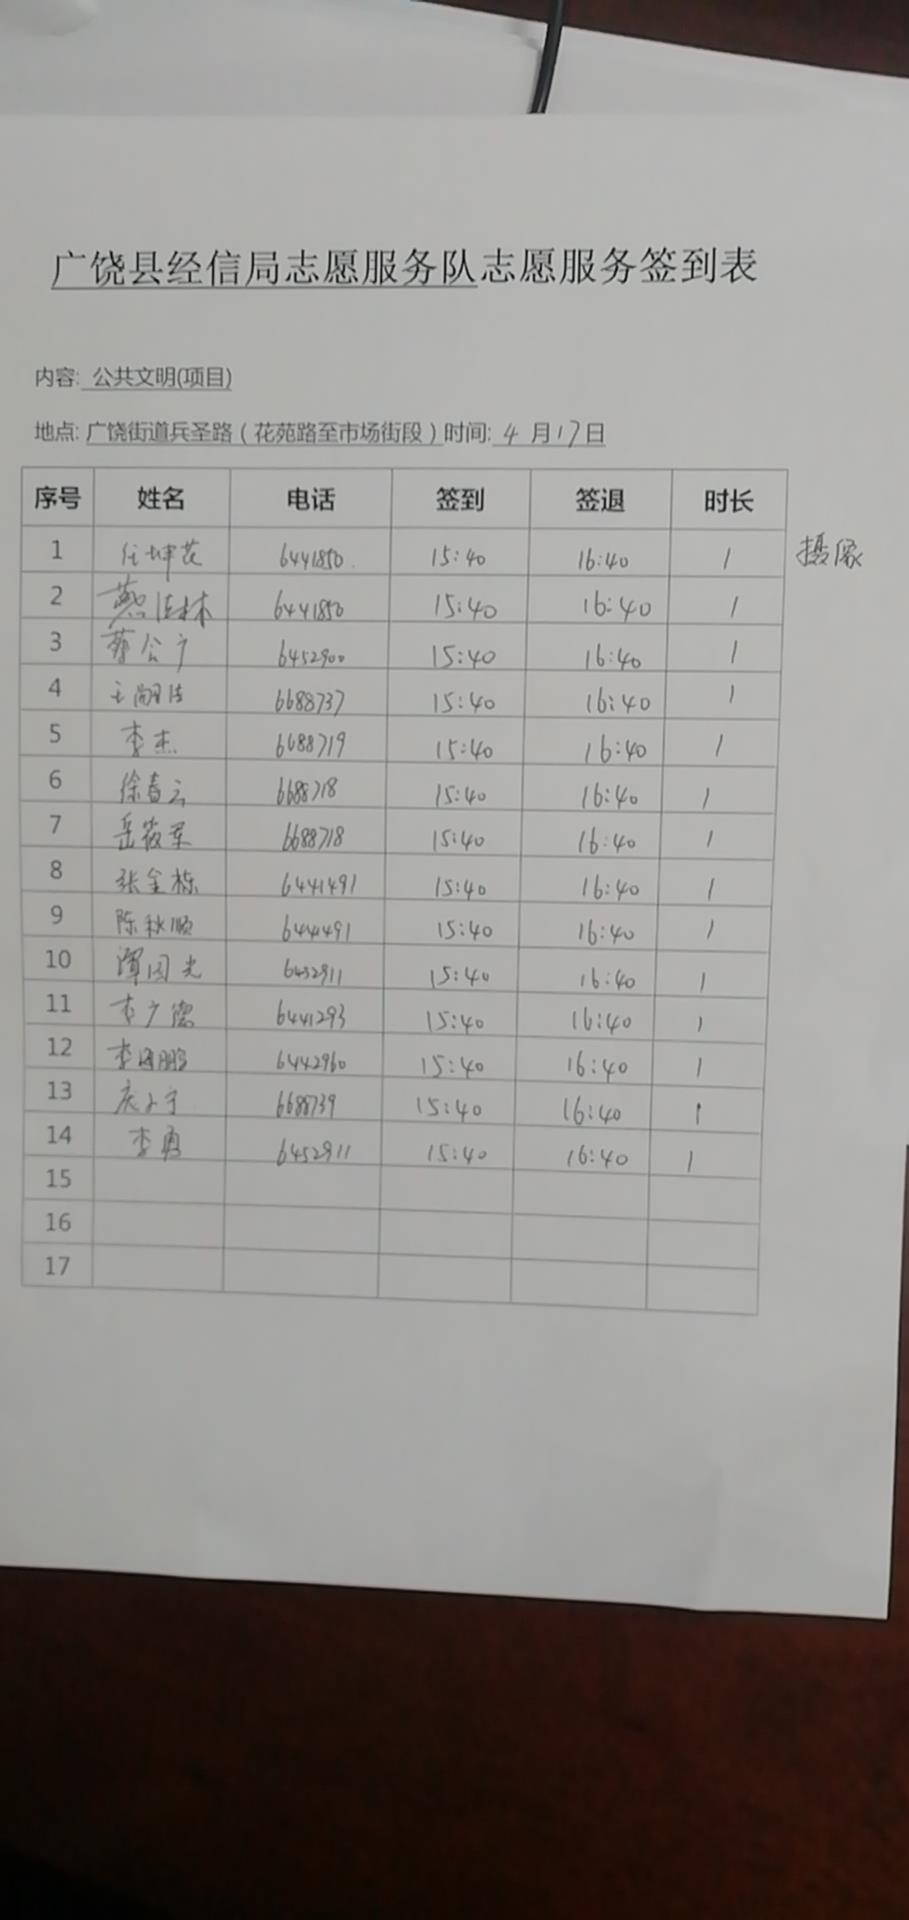 广饶县经信局志愿服务队志愿服务签到表
内容: 公共文明(项目)
地点: 广饶街道兵圣路（花苑路至市场街段）时间: 4 月17日
序号 姓名 电话 签到 签退 时长
1 任坤花 6441850 15:40 16:40 1 摄像
2 燕洪林 6441850 15:40 16:40 1
3 6452900 15:40 16:40 1
4 6688737 15:40 16:40 1
5 李杰 6688719 15:40 16:40 1
6 徐春云 6688718 15:40 16:40 1
7 岳筱军 6688718 15:40 16:40 1
8 张金栋 6441491 15:40 16:40 1
9 陈秋顺 6441491 15:40 16:40 1
10 谭国光 6452911 15:40 16:40 1
11 李广德 6441293 15:40 16:40 1
12 李国鹏 6442960 15:40 16:40 1
13 6688739 15:40 16:40 1
14 李勇 6452911 15:40 16:40 1
15
16
17